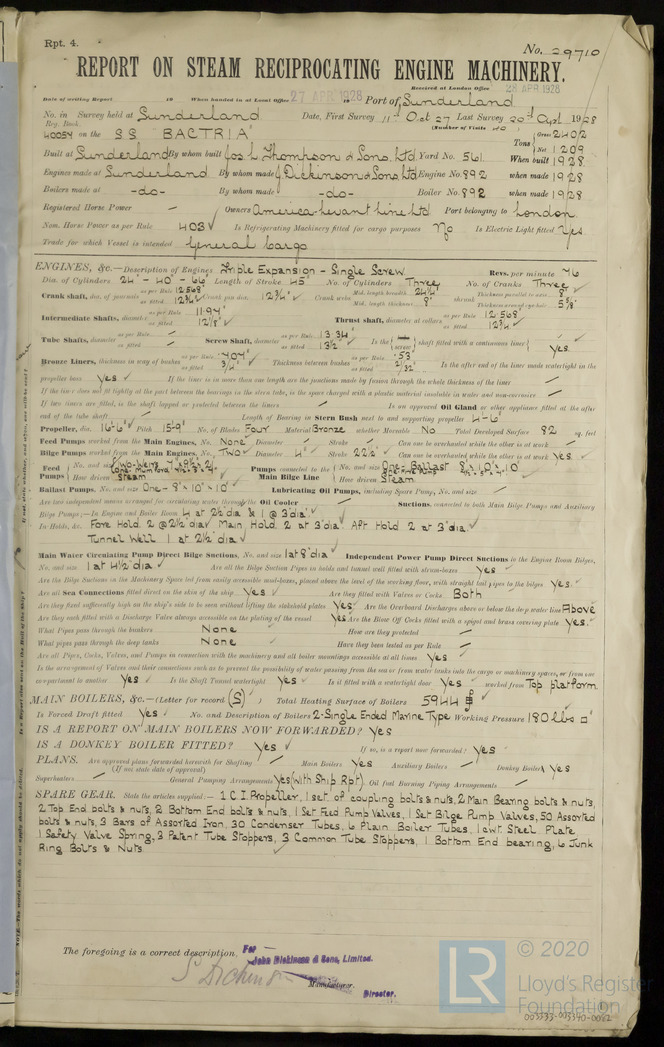 Rpt. 4.
No. 29710
REPORT ON STEAM RECIPROCATING ENGINE MACHINERY.
Received at London Office 28 APR 1928
Date of writing Report 19 When handed in at Local Office 27 APR 1928 19 Port of Sunderland
No. in Survey held at Sunderland Date, First Survey 11th Oct 27 Last Survey 20th Apl 1928
Reg. Book. (Number of Visits 40)
40054 on the S.S. "BACTRIA" Tons Gross 2402
Net 1209
Built at Sunderland By whom built Jos. L. Thompson & Sons, Ltd. Yard No. 561 When built 1928
Engines made at Sunderland By whom made J. Dickinson & Sons, Ltd. Engine No. 892 when made 1928
Boilers made at -do- By whom made -do- Boiler No. 892 when made 1928
Registered Horse Power — Owners America-Levant Line Ltd Port belonging to London
Nom. Horse Power as per Rule 403 Is Refrigerating Machinery fitted for cargo purposes No Is Electric Light fitted Yes.
Trade for which Vessel is intended General Cargo
ENGINES, &c.—Description of Engines Triple Expansion - Single Screw Revs. per minute 76
Dia. of Cylinders 24" - 40" - 66" Length of Stroke 45" No. of Cylinders Three No. of Cranks Three
Crank shaft, dia. of journals as per Rule 12.568" as fitted 12¾" Crank pin dia. 12¾" Crank webs Mid. length breadth 24¾" Mid. length thickness 8" shrunk Thickness parallel to axis 8" Thickness around eye-hole 5⅝"
Intermediate Shafts, diameter as per Rule 11.97" as fitted 12⅛" Thrust shaft, diameter at collars as per Rule 12.568" as fitted 12¾"
Tube Shafts, diameter as per Rule — as fitted — Screw Shaft, diameter as per Rule 13.34" as fitted 13½" Is the screw shaft fitted with a continuous liner Yes.
Bronze Liners, thickness in way of bushes as per Rule .707" as fitted ¾" Thickness between bushes as per Rule .53" as fitted Is the after end of the liner made watertight in the
propeller boss Yes If the liner is in more than one length are the junctions made by fusion through the whole thickness of the liner —
If the liner does not fit tightly at the part between the bearings in the stern tube, is the space charged with a plastic material insoluble in water and non-corrosive —
If two liners are fitted, is the shaft lapped or protected between the liners — Is an approved Oil Gland or other appliance fitted at the after
end of the tube shaft — Length of Bearing in Stern Bush next to and supporting propeller 4'-6"
Propeller, dia. 16'-6" Pitch 15'-9" No. of Blades Four Material Bronze whether Moveable No Total Developed Surface 82 sq. feet
Feed Pumps worked from the Main Engines, No. None Diameter — Stroke — Can one be overhauled while the other is at work —
Bilge Pumps worked from the Main Engines, No. Two Diameter 4" Stroke 22½" Can one be overhauled while the other is at work Yes
Feed Pumps No. and size How driven Steam Pumps connected to the Main Bilge Line No. and size One-Ballast 8" x 10" x 10" How driven Steam
Ballast Pumps, No. and size One - 8" x 10" x 10" Lubricating Oil Pumps, including Spare Pump, No. and size —
Are two independent means arranged for circulating water through the Oil Cooler — Suctions, connected to both Main Bilge Pumps and Auxiliary
Bilge Pumps;—In Engine and Boiler Room 4 at 2½" dia & 1 @ 3" dia
In Holds, &c. Fore Hold 2 @ 2½" dia. Main Hold 2 at 3" dia. Aft Hold 2 at 3" dia.
Tunnel Well 1 at 2½" dia
Main Water Circulating Pump Direct Bilge Suctions, No. and size 1 at 8" dia Independent Power Pump Direct Suctions to the Engine Room Bilges,
No. and size 1 at 4½" dia Are all the Bilge Suction Pipes in holds and tunnel well fitted with strum-boxes Yes
Are the Bilge Suctions in the Machinery Space led from easily accessible mud-boxes, placed above the level of the working floor, with straight tail pipes to the bilges Yes.
Are all Sea Connections fitted direct on the skin of the ship Yes Are they fitted with Valves or Cocks Both
Are they fixed sufficiently high on the ship's side to be seen without lifting the stokehold plates Yes Are the Overboard Discharges above or below the deep water line Above
Are they each fitted with a Discharge Valve always accessible on the plating of the vessel Yes Are the Blow Off Cocks fitted with a spigot and brass covering plate Yes.
What Pipes pass through the bunkers None How are they protected —
What pipes pass through the deep tanks None Have they been tested as per Rule —
Are all Pipes, Cocks, Valves, and Pumps in connection with the machinery and all boiler mountings accessible at all times Yes
Is the arrangement of Valves and their connections such as to prevent the possibility of water passing from the sea or from water tanks into the cargo or machinery spaces, or from one
compartment to another Yes Is the Shaft Tunnel watertight Yes Is it fitted with a watertight door Yes worked from Top platform
MAIN BOILERS, &c.—(Letter for record (S)) Total Heating Surface of Boilers 5944
Is Forced Draft fitted Yes No. and Description of Boilers 2-Single Ended Marine Type Working Pressure 180 lbs □"
IS A REPORT ON MAIN BOILERS NOW FORWARDED? Yes
IS A DONKEY BOILER FITTED? Yes If so, is a report now forwarded? Yes
PLANS. Are approved plans forwarded herewith for Shafting — Main Boilers Yes Auxiliary Boilers — Donkey Boilers Yes
(If not state date of approval)
Superheaters — General Pumping Arrangements Yes (with Ship Rpt). Oil fuel Burning Piping Arrangements —
SPARE GEAR. State the articles supplied:— 1 C.I. Propeller, 1 set of coupling bolts & nuts, 2 Main Bearing bolts & nuts,
2 Top End bolts & nuts, 2 Bottom End bolts & nuts, 1 Set Feed Pump Valves, 1 Set Bilge Pump Valves, 50 Assorted
bolts & nuts, 3 Bars of Assorted Iron, 30 Condenser Tubes, 6 Plain Boiler Tubes, 1 cwt. Steel Plate
1 Safety Valve Spring, 3 Patent Tube Stoppers, 3 Common Tube Stoppers, 1 Bottom End bearing, 6 Junk
Ring Bolts & Nuts.
The foregoing is a correct description,
For John Dickinson & Sons, Limited.
S Dickinson
Manufacturer.
Director.
© 2020
LR
Lloyd's Register
Foundation